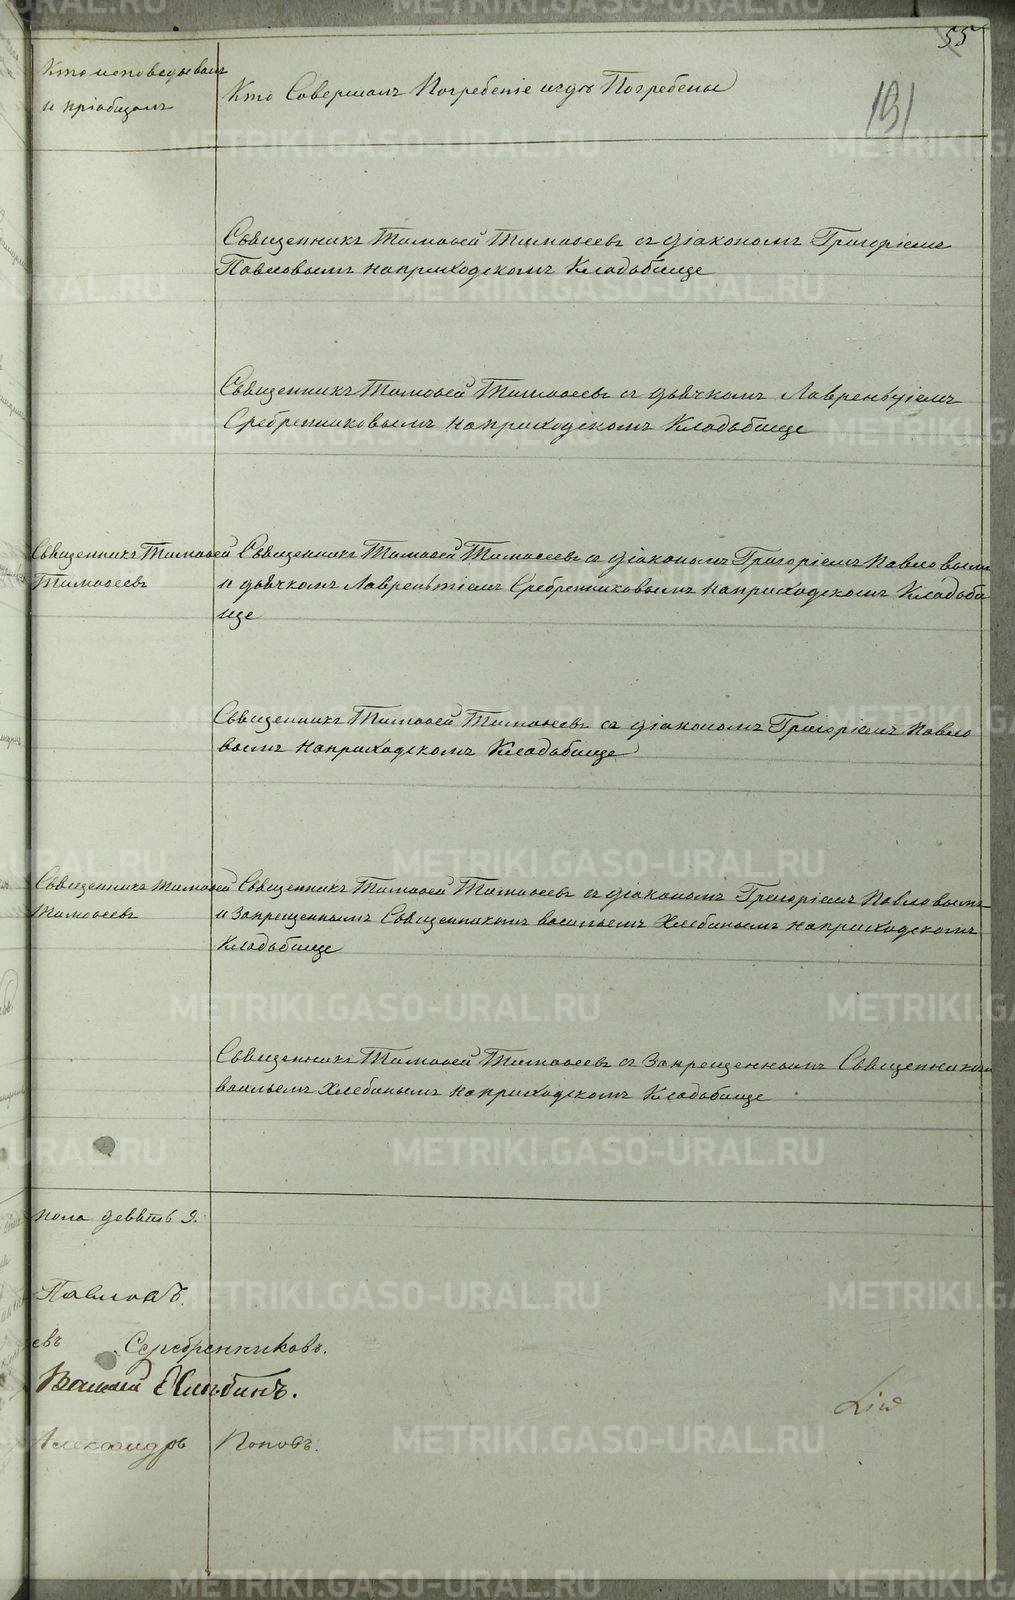 55
191
Кто исповедывалъ Кто Совершалъ Погребеніе игдѣ Погребены
и пріобщалъ
Священникъ Тимоѳей Тимоѳеевъ съ діакономъ Григоріемъ
Павловымъ наприходскомъ Кладьбище
Священникъ Тимоѳей Тимоѳеевъ съ дьячкомъ Лаврентіемъ
Сребрениковымъ наприходскомъ Кладьбище
Священникъ Тимоѳей Священникъ Тимоѳей Тимоѳеевъ съ діакономъ Григоріемъ Павловымъ
Тимоѳеевъ и дьячкомъ Лаврентіемъ Сребрениковымъ наприходскомъ Кладьби
ще
Священникъ Тимоѳей Тимоѳеевъ съ діакономъ Григоріемъ Павло
вымъ наприходскомъ Кладьбище
Священникъ Тимоѳей Священникъ Тимоѳей Тимоѳеевъ съ діакономъ Григоріемъ Павловымъ
Тимоѳеевъ и Запрещеннымъ Священникомъ васильемъ Хлебинымъ наприходскомъ
Кладьбище
Священникъ Тимоѳей Тимоѳеевъ съ Запрещеннымъ Священникомъ
васильемъ Хлебинымъ наприходскомъ Кладьбище
пола девять 9.
Павловъ.
евъ Серебренниковъ.
Василій Хлѣбинъ.
Александръ Поповъ.
METRIKI.GASO-URAL.RU